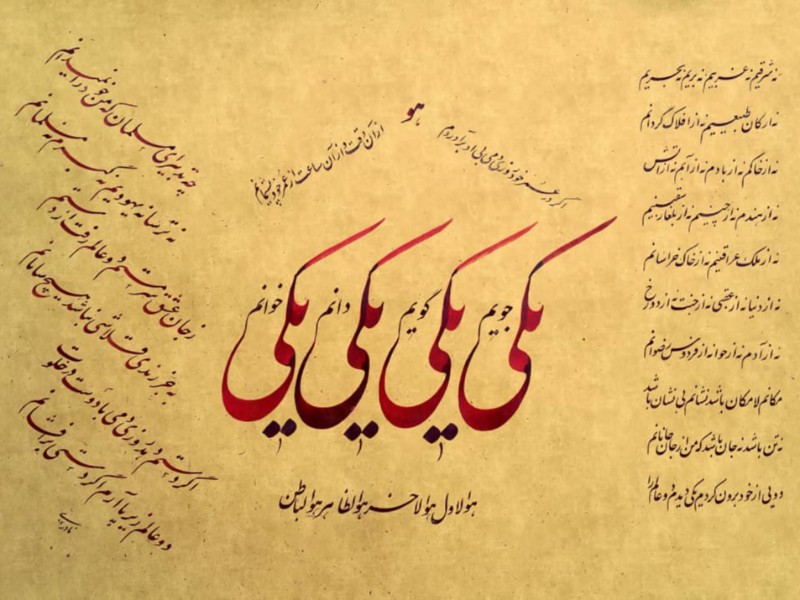 چه تدبیر ای مسلمانان که من خود را نمیدانم
نه ترسا نه یهودیم نه گبرم نه مسلمانم
نه شرقیم نه غربیم نه بریم نه بحریم
نه ارکان طبیعیم نه از افلاک گردانم
نه از خاکم نه از بادم نه از آبم نه از آتش
نه از هندم نه از چینم نه از بلغار سقسینم
نه از ملک عراقینم نه از خاک خراسانم
نه از دنیا نه از عقبی نه از جنت نه از دوزخ
نه از آدم نه از حوا نه از فردوس رضوانم
مکانم لامکان باشد نشانم بی نشان باشد
نه تن باشد نه جان باشد که من از جان جانانم
دویی از خود برون کردم یکی دیدم دو عالم را
هو
یکی جویم یکی گویم یکی دانم یکی خوانم
هوالاول هوالاخر هوالظاهر هوالباطن
اگر در عمر خود روزی دمی بی او برآوردم
از آن وقت و از آن ساعت ز عمر خود پشیمانم
ز جان عشق سرمستم دو عالم رفت از دستم
به جز رندی و قلاشی نباشد هیچ سامانم
اگر دستم دهد روزی دمی با دوست در خلوت
دو عالم زیر پا آرم اگر دستی برافشانم